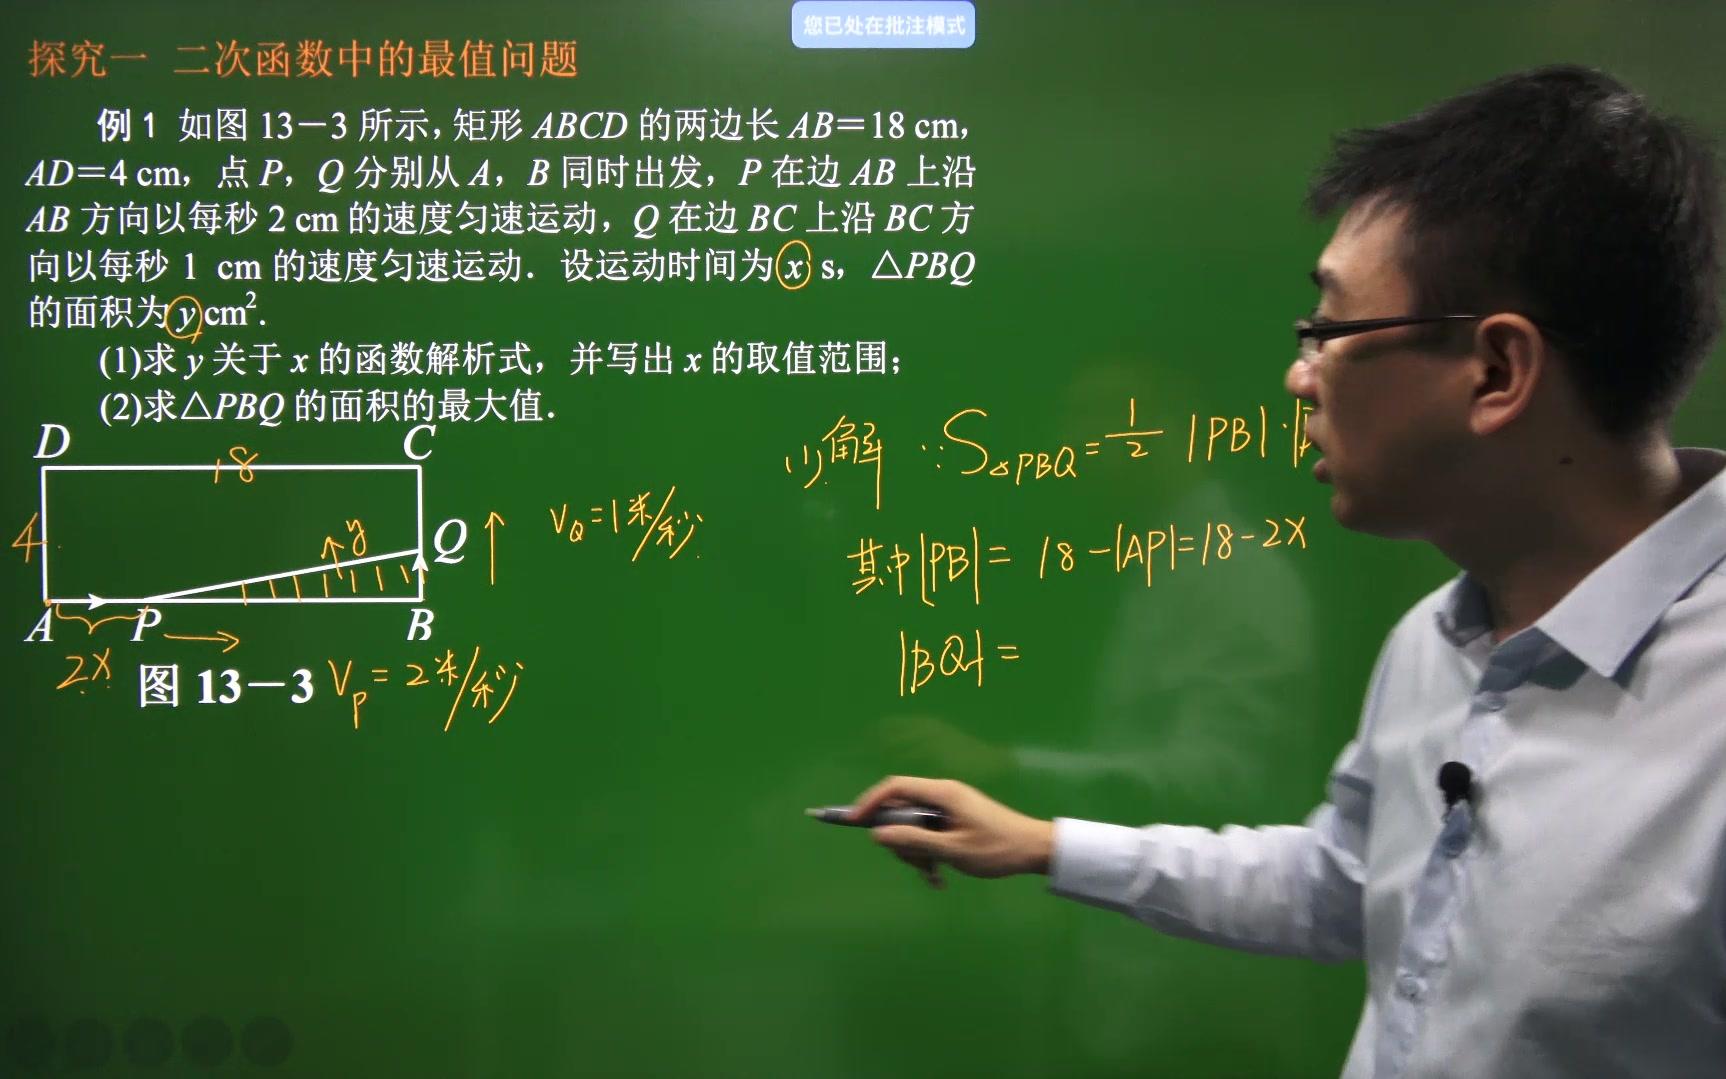 您已处在批注模式
探究一 二次函数中的最值问题
例1 如图 13-3 所示,矩形 ABCD 的两边长 AB=18 cm,
AD=4 cm,点 P,Q 分别从 A,B 同时出发,P 在边 AB 上沿
AB 方向以每秒 2 cm 的速度匀速运动,Q 在边 BC 上沿 BC 方
向以每秒 1 cm 的速度匀速运动.设运动时间为 x s,△PBQ
的面积为 y cm².
(1)求 y 关于 x 的函数解析式,并写出 x 的取值范围;
(2)求△PBQ 的面积的最大值.
D C
18
4
y
Q
A P B
2x
图 13-3
V_P=2米/秒
V_Q=1米/秒
(1)解 ∵S△PBQ=1/2 |PB|·|
其中|PB|=18-|AP|=18-2x
|BQ|=